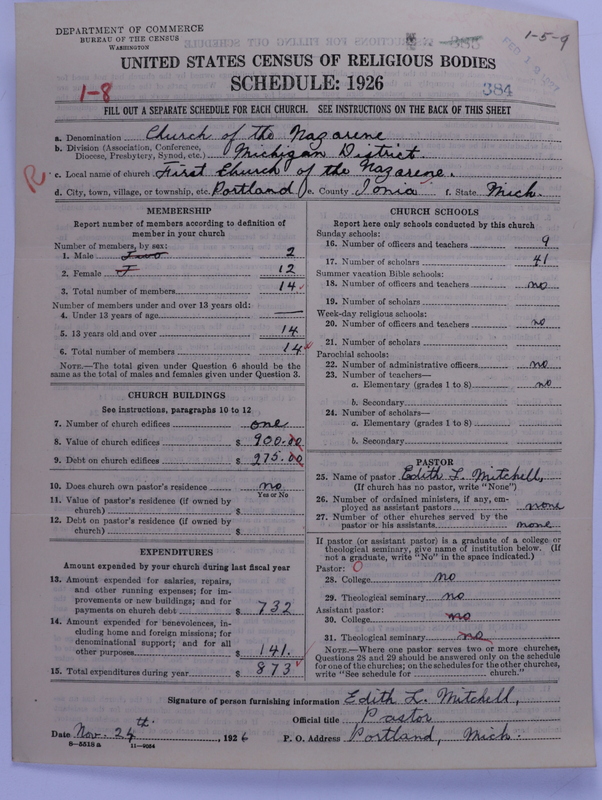 DEPARTMENT OF COMMERCE
BUREAU OF THE CENSUS
WASHINGTON
385
1-5-9
UNITED STATES CENSUS OF RELIGIOUS BODIES
SCHEDULE: 1926
1-8
384
FILL OUT A SEPARATE SCHEDULE FOR EACH CHURCH. SEE INSTRUCTIONS ON THE BACK OF THIS SHEET
a. Denomination Church of the Nazarene
b. Division (Association, Conference, Diocese, Presbytery, Synod, etc.) Michigan District.
R c. Local name of church First Church of the Nazarene.
d. City, town, village, or township, etc. Portland e. County Ionia f. State Mich.
MEMBERSHIP
Report number of members according to definition of
member in your church
Number of members, by sex:
1. Male Two 2
2. Female 12
3. Total number of members 14
Number of members under and over 13 years old:
4. Under 13 years of age —
5. 13 years old and over 14
6. Total number of members 14
NOTE.—The total given under Question 6 should be
same as the total of males and females given under Question 3.
CHURCH BUILDINGS
See instructions, paragraphs 10 to 12
7. Number of church edifices one
8. Value of church edifices $ 900.00
9. Debt on church edifices $ 275.00
10. Does church own pastor's residence no
Yes or No
11. Value of pastor's residence (if owned by
church) $
12. Debt on pastor's residence (if owned by
church) $
EXPENDITURES
Amount expended by your church during last fiscal year
13. Amount expended for salaries, repairs,
and other running expenses; for im-
provements or new buildings; and for
payments on church debt $ 732
14. Amount expended for benevolences, in-
cluding home and foreign missions; for
denominational support; and for all
other purposes $ 141.
15. Total expenditures during year $ 873
CHURCH SCHOOLS
Report here only schools conducted by this church
Sunday schools:
16. Number of officers and teachers 9
17. Number of scholars 41
Summer vacation Bible schools:
18. Number of officers and teachers no
19. Number of scholars
Week-day religious schools:
20. Number of officers and teachers no
21. Number of scholars
Parochial schools:
22. Number of administrative officers no
23. Number of teachers—
a. Elementary (grades 1 to 8) no
b. Secondary
24. Number of scholars—
a. Elementary (grades 1 to 8)
b. Secondary
PASTOR
25. Name of pastor Edith L. Mitchell,
(If church has no pastor, write "None")
26. Number of ordained ministers, if any, em-
ployed as assistant pastors none
27. Number of other churches served by the
pastor or his assistants none
If pastor (or assistant pastor) is a graduate of a college or
theological seminary, give name of institution below. (If
not a graduate, write "No" in the space indicated.)
Pastor: O
28. College no
29. Theological seminary no
Assistant pastor:
30. College no
31. Theological seminary no
NOTE.—Where one pastor serves two or more churches,
Questions 28 and 29 should be answered only on the schedule
for one of the churches; on the schedules for the other churches,
write "See schedule for church."
Signature of person furnishing information Edith L. Mitchell,
Official title Pastor
Date Nov. 24th., 1926 P. O. Address Portland, Mich.
8-5518a 11-9064